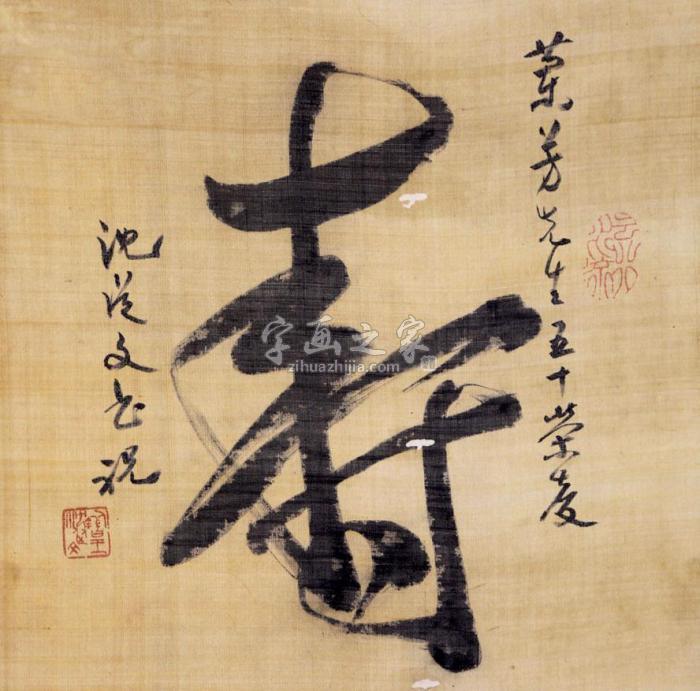 兰芳先生五十荣庆
寿
沈从文书祝
字画之家
zihuazhijia.com